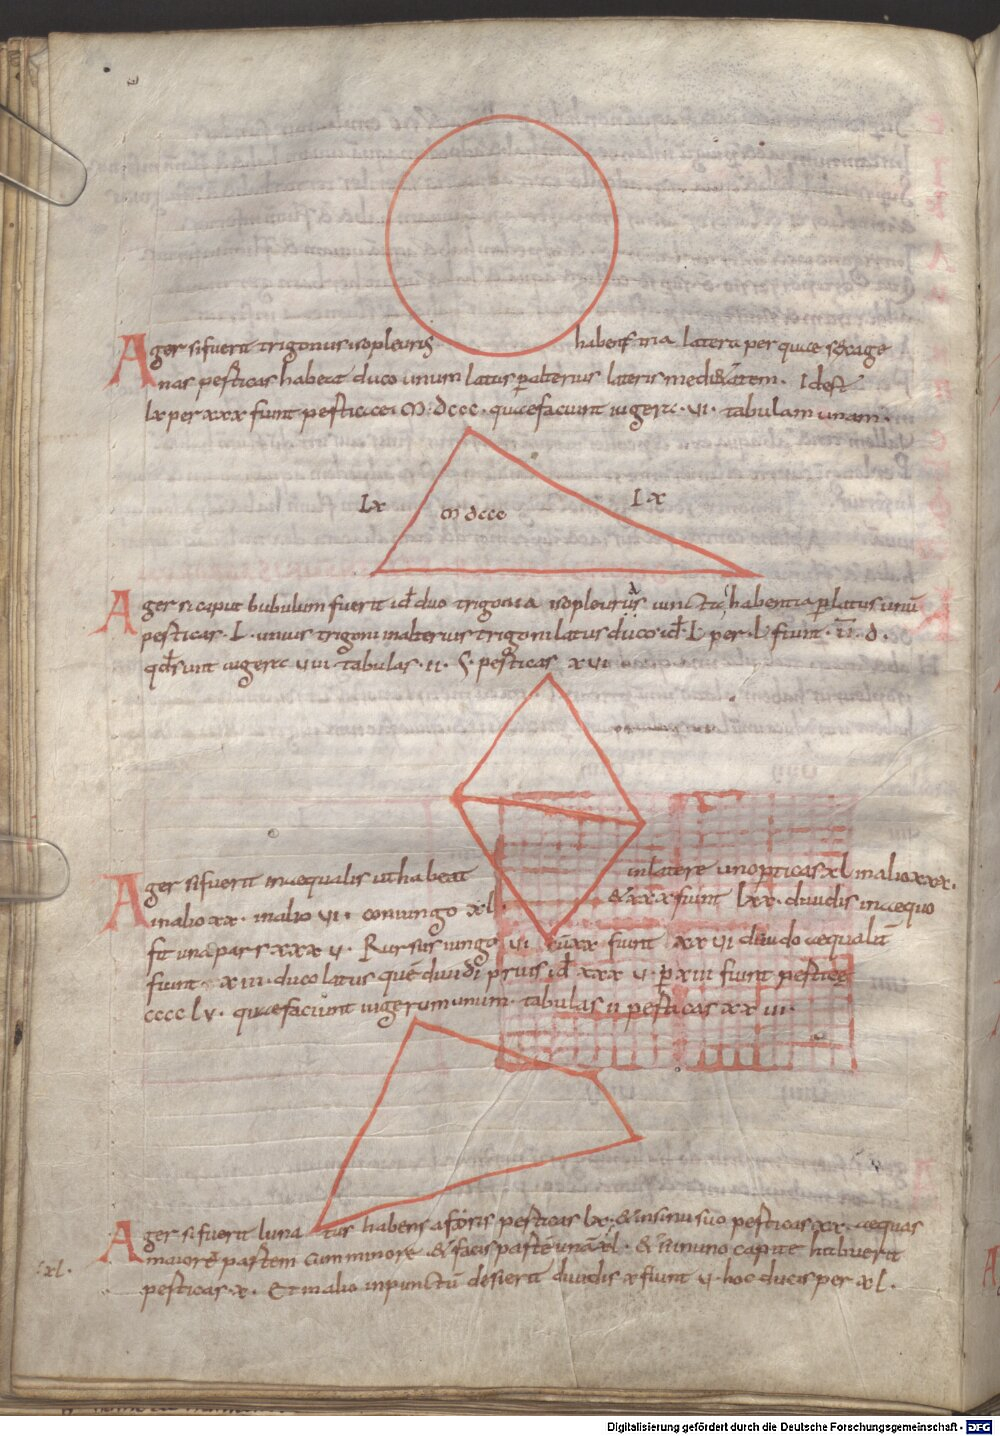 Ager si fuerit trigonus isopleurus habens tria latera per quae sexage
nas perticas habeat duco unum latus p alterius lateris medietatem. Idest
lx per xxx fiunt perticae i M. dccc. quae faciunt iugera. vi. tabulam unam.
Lx M dccc Lx
Ager si caput bubulum fuerit id duo trigona isopleurus iunctis habentia p latus unu
perticas. L. unius trigoni in alterius trigoni latus duco. id L per. L fiunt. ii. d.
qd sunt iugera viii tabulas. ii. S. perticas xvi
Ager si fuerit inaequalis ut habeat in latere uno pticas xl in alio xxx.
in alio xx. in alio vi. coniungo xl. & xxx fiunt lxx. diuidis in aequo
fit una pars xxxv. Rursus iungo vi cu xx fiunt xxvi diuido aequalit
fiunt xiii. duco latus que diuidi prius id xxxv. p xiii fiunt pertice
cccc lv. quae faciunt iugerum unum. tabulas ii perticas xxiii.
Ager si fuerit lunatus habens a foris perticas lx. & in sinu suo perticas xx. aequas
maiore partem cum minore. & facis parte una xl. & si in uno capite habuerit
xl.
perticas. x. Et in alio in punctu desierit diuidis x fiunt v. hoc ducis per xl.
Digitalisierung gefördert durch die Deutsche Forschungsgemeinschaft - DFG